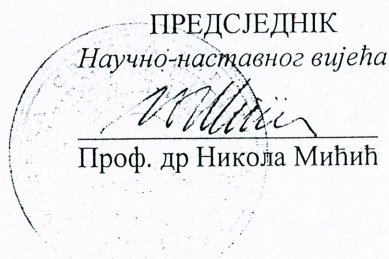 ПРЕДСЈЕДНІК
Научно-наставног вијећа
Проф. др Никола Мићић